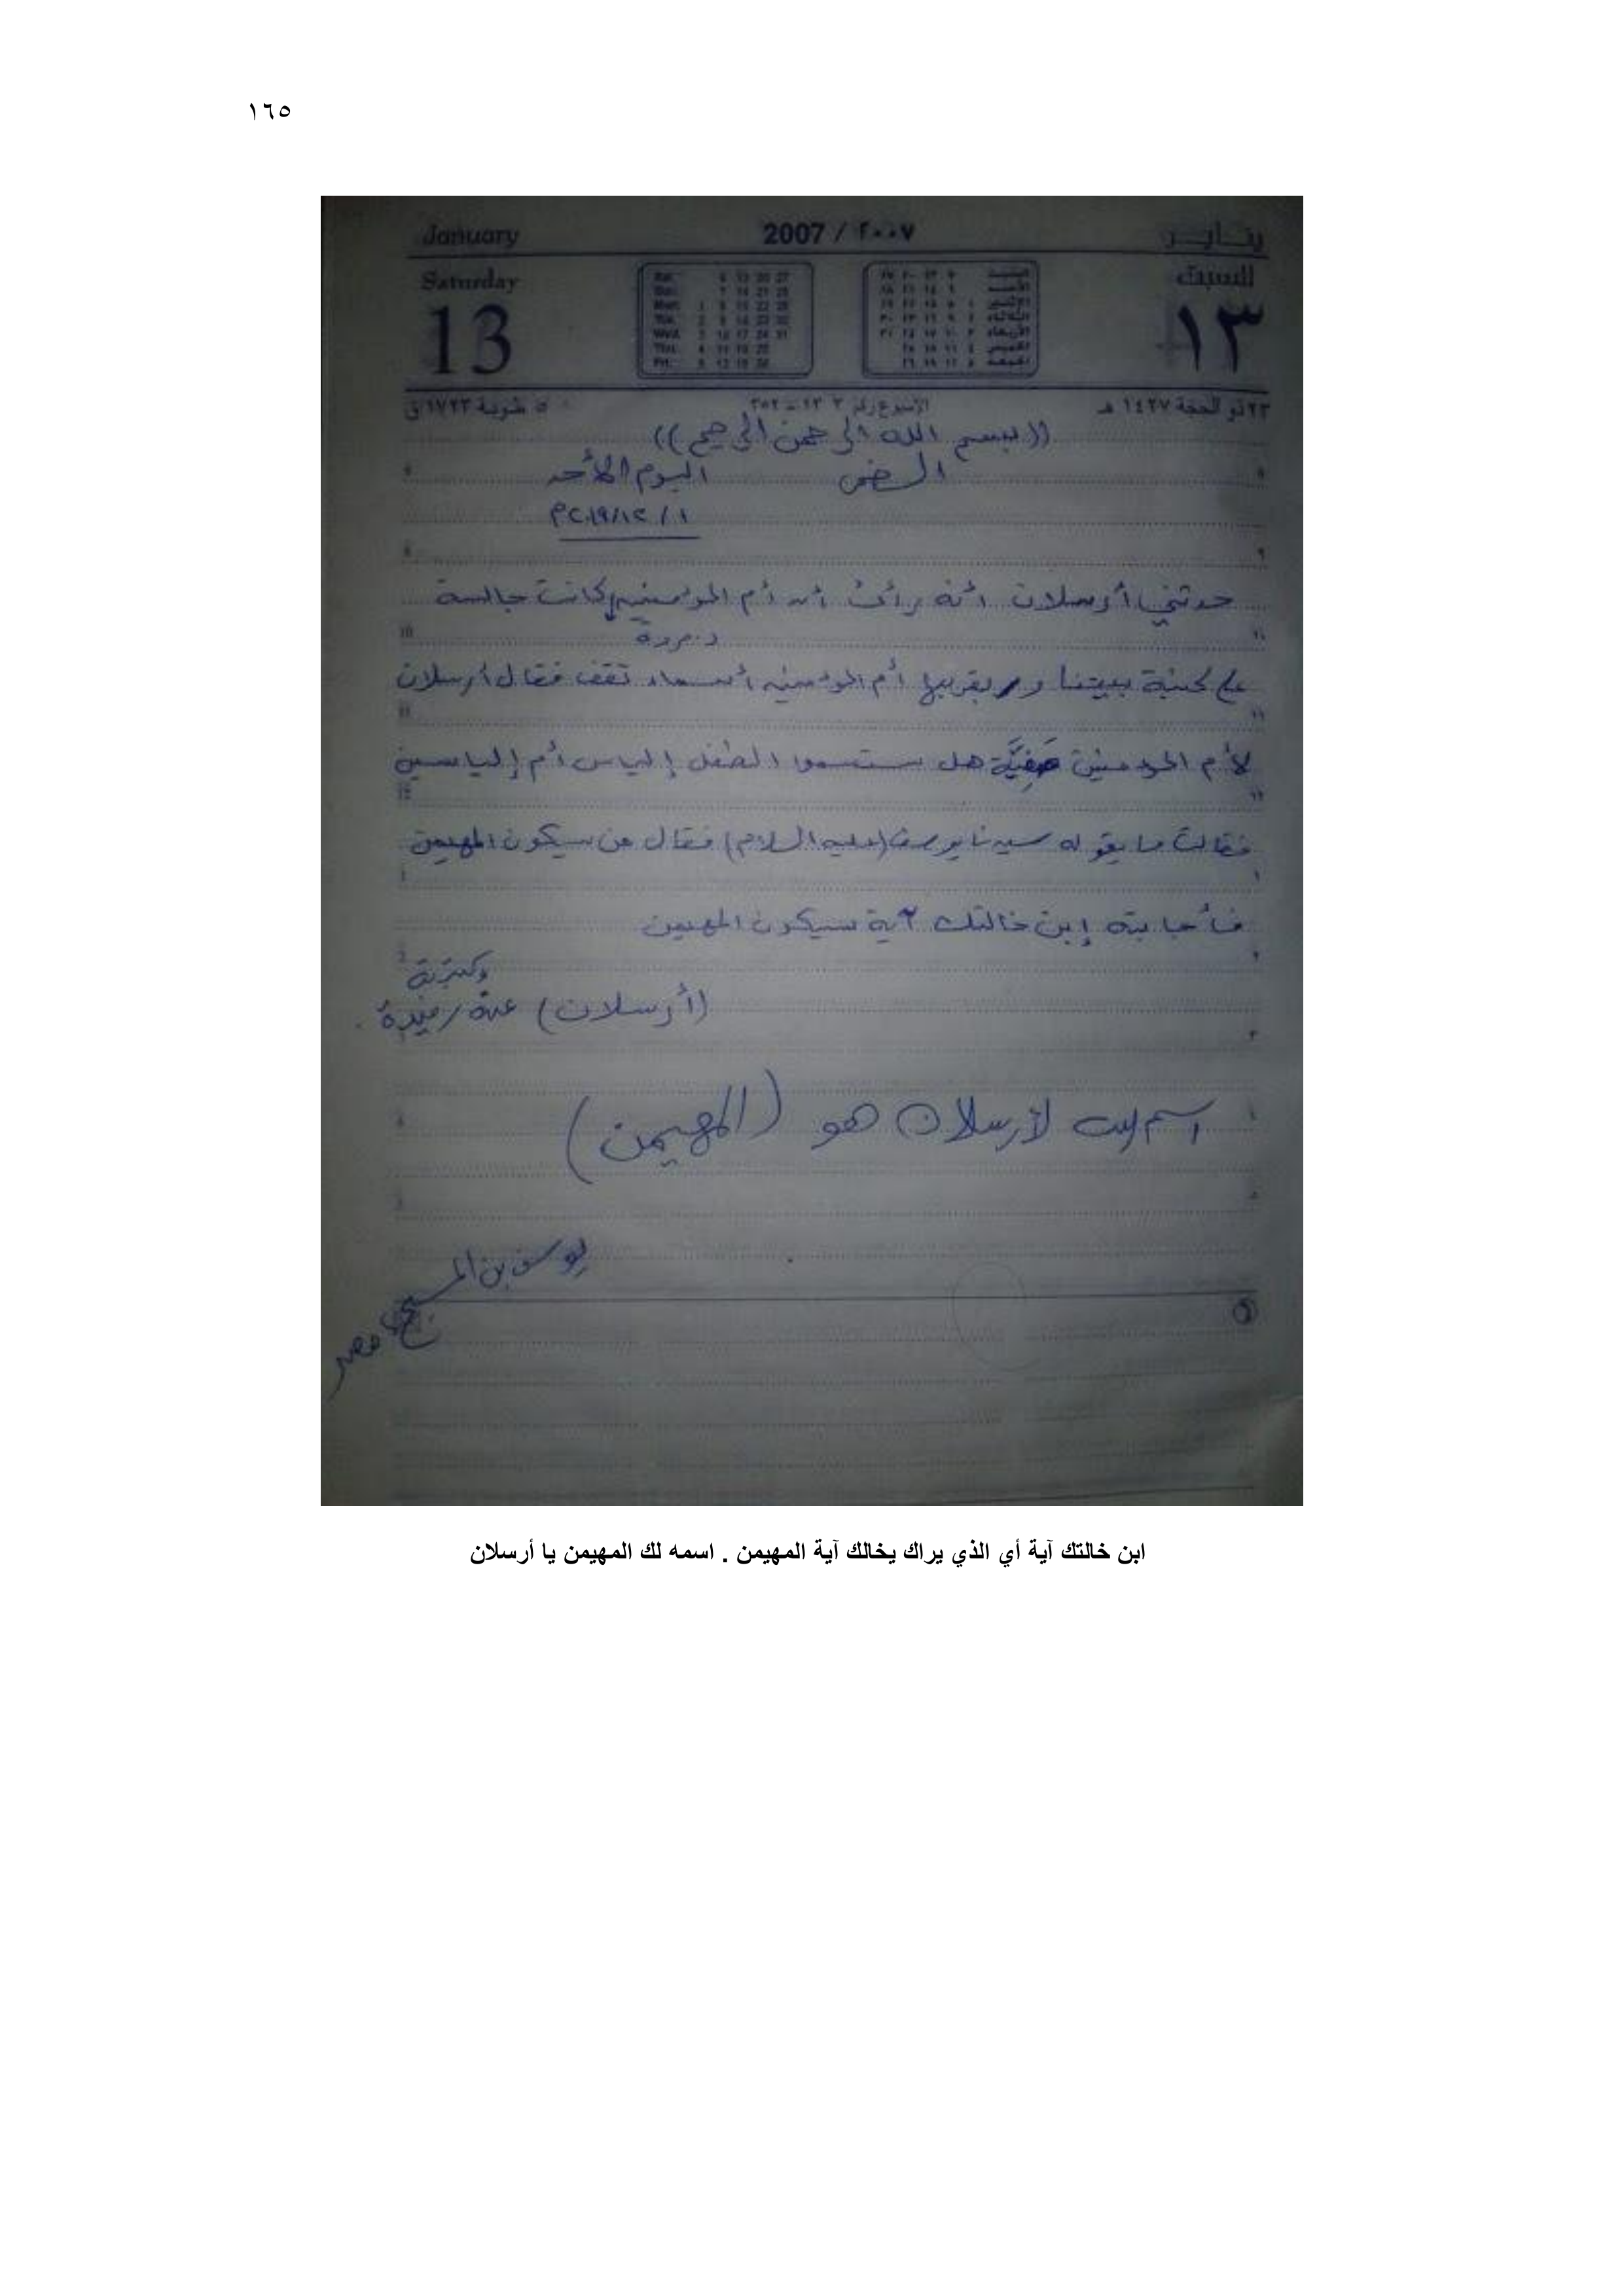 ١٦٥
January 2007 / ٢٠٠٧ يناير
Saturday السبت
13 ١٣
٢٣ ذو الحجة ١٤٢٧ هـ ٥ طوبة ١٧٢٣ ق
((بسم الله الرحمن الرحيم))
اليوم الأحد
١ / ١٢ / ٢٠١٩م
حدثني أرسلان أنه رأى أن أم المؤمنين كانت جالسة
د.مروة
على كنبة بيتنا و بقربها أم المؤمنين أسماء تقف فقال أرسلان
لأم المؤمنين صَفِيَّة هل ستسموا الطفل إلياس أم إلياسين
فقالت ما يقوله سيدنا يوسف (عليه السلام) فقال من سيكون المهيمن
فأجابته إبن خالتك آية سيكون المهيمن
وكتبته
(أرسلان) عنه رفيدة
اسم لأرسلان هو (المهيمن)
يوسف بن المسيح
مصر
ابن خالتك آية أي الذي يراك يخالك آية المهيمن . اسمه لك المهيمن يا أرسلان